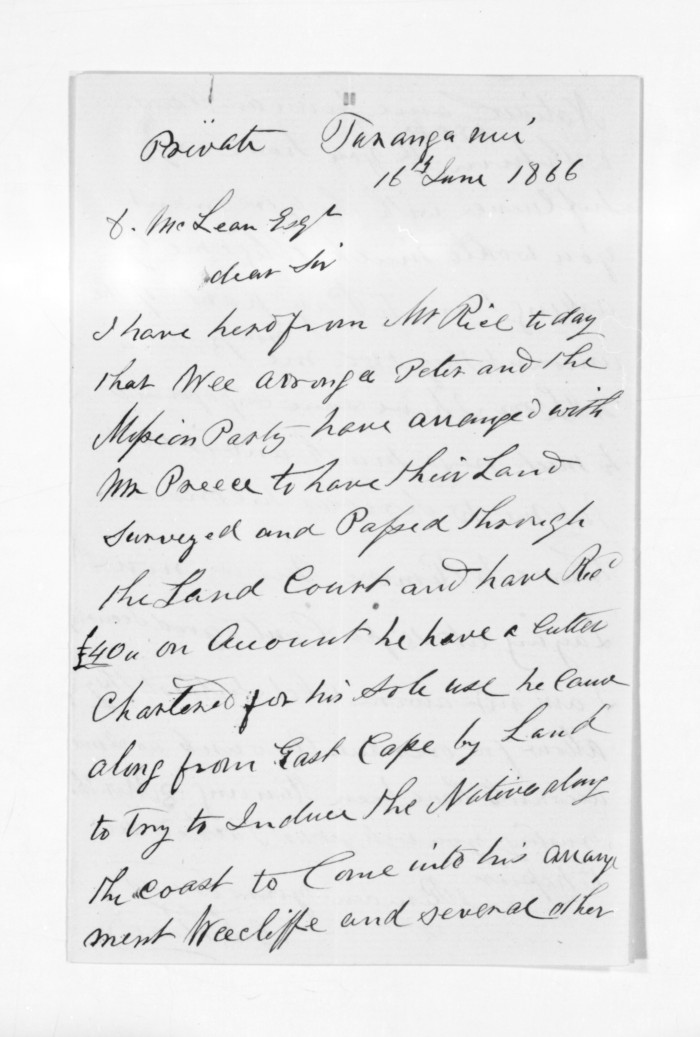 Private Turanganui
16th June 1866
D. McLean Esqr
dear Sir
I have herd from Mr Rice to day
that Wee Arronga Peter and the
Mission Party have arranged with
Mr Preece to have thier Land
Surveyed and Passed through
the Land Court and have Recd
£40 on Account he have a Cutter
Chartered for his Sole use he Came
along from East Cape by Land
to Try to Induce the Natives along
the coast to Come into his arrange
ment Weecliffe and several other